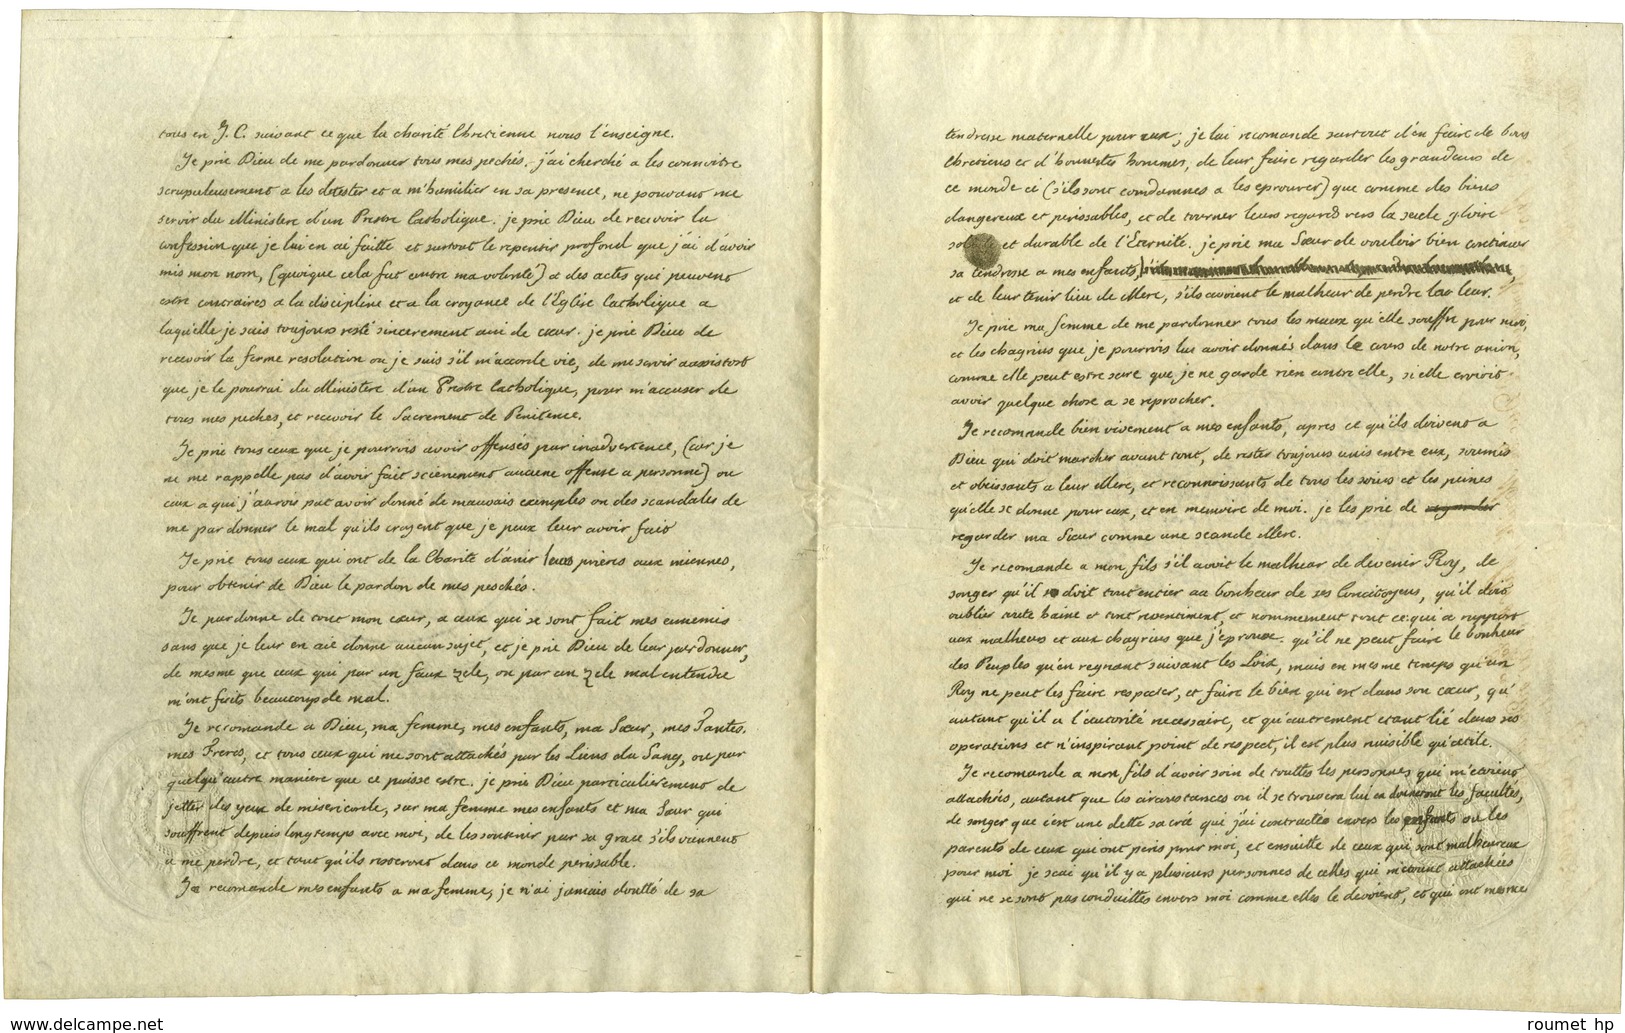 tous en J. C. suivant ce que la charité Chretienne nous l'enseigne.
Je prie Dieu de me pardonner tous mes pechés. j'ai cherché a les connoitre
scrupuleusement a les detester et a m'humilier en sa presence, ne pouvant me
servir du Ministere d'un Prestre Catholique. je prie Dieu de recevoir la
confession que je lui en ai faitte et surtout le repentir profond que j'ai d'avoir
mis mon nom, (quoique cela fut contre ma volonté) a des actes qui peuvent
estre contraires a la discipline et a la croyance de l'Eglise Catholique a
laquelle je suis toujours resté sincerement uni de cœur. je prie Dieu de
recevoir la ferme resolution ou je suis s'il m'accorde vie, de me servir aussistost
que je le pourrai du Ministere d'un Prestre Catholique, pour m'accuser de
tous mes pechés, et recevoir le Sacrement de Penitence.
Je prie tous ceux que je pourrois avoir offensés par inadvertence, (car je
ne me rappelle pas d'avoir fait sciemment aucune offense a personne) ou
ceux a qui j'aurois put avoir donné de mauvais exemples ou des scandales de
me pardonner le mal qu'ils croyent que je peux leur avoir fait
Je prie tous ceux qui ont de la Charité d'unir leurs prieres aux miennes,
pour obtenir de Dieu le pardon de mes peschés.
Je pardonne de tout mon cœur, a ceux qui se sont fait mes ennemis
sans que je leur en aie donné aucun sujet, et je prie Dieu de leur pardonner,
de mesme que ceux qui par un faux zele, ou par un zele mal entendu
m'ont faits beaucoup de mal.
Je recomande a Dieu, ma femme, mes enfants, ma Sœur, mes Tantes,
mes Freres, et tous ceux qui me sont attachés par les Liens du Sang, ou par
quelqu'autre maniere que ce puisse estre. je prie Dieu particulierement de
jetter des yeux de misericorde, sur ma femme mes enfants et ma Sœur qui
souffrent depuis longtemps avec moi, de les soutenir par sa grace s'ils viennent
a me perdre, et tant qu'ils resteront dans ce monde perissable.
Je recomande mes enfants a ma femme, je n'ai jamais doutté de sa
tendresse maternelle pour eux; je lui recomande surtout d'en faire de bons
Chretiens et d'honnestes hommes, de leur faire regarder les grandeurs de
ce monde ci (s'ils sont condamnés a les eprouver) que comme des biens
dangereux et perissables, et de tourner leurs regards vers la seule gloire
solide et durable de l'Eternité. je prie ma Sœur de vouloir bien continuer
sa tendresse a mes enfants,
et de leur tenir lieu de Mere, s'ils avoient le malheur de perdre la leur.
Je prie ma femme de me pardonner tous les maux qu'elle souffre pour moi,
et les chagrins que je pourrois lui avoir donnés dans le cours de notre union,
comme elle peut estre sure que je ne garde rien contre elle, si elle croioit
avoir quelque chose a se reprocher.
Je recomande bien vivement a mes enfants, apres ce qu'ils doivent a
Dieu qui doit marcher avant tout, de rester toujours unis entre eux, soumis
et obeissants a leur Mere, et reconnoissants de tous les soins et les peines
qu'elle se donne pour eux, et en memoire de moi. je les prie de regarder
regarder ma Sœur comme une seconde Mere.
Je recomande a mon fils s'il avoit le malheur de devenir Roy, de
songer qu'il se doit tout entier au bonheur de ses Concitoyens, qu'il doit
oublier toute haine et tout ressentiment, et nommement tout ce qui a rapport
aux malheurs et aux chagrins que j'eprouve. qu'il ne peut faire le bonheur
des Peuples qu'en regnant suivant les Loix, mais en mesme temps qu'un
Roy ne peut les faire respecter, et faire le bien qui est dans son cœur, qu'
autant qu'il a l'autorité necessaire, et qu'autrement etant lié dans ses
operations et n'inspirant point de respect, il est plus nuisible qu'utile.
Je recomande a mon fils d'avoir soin de touttes les personnes qui m'etoient
attachés, autant que les circonstances ou il se trouvera lui en donneront les facultés,
de songer que c'est une dette sacrée que j'ai contractée envers les enfants ou les
parents de ceux qui ont peris pour moi, et ensuitte de ceux qui sont malheureux
pour moi je scai qu'il y a plusieurs personnes de celles qui m'etoient attachées
qui ne se sont pas conduittes envers moi comme elles le devoient, et qui ont mesme
roumet hp
www.delcampe.net